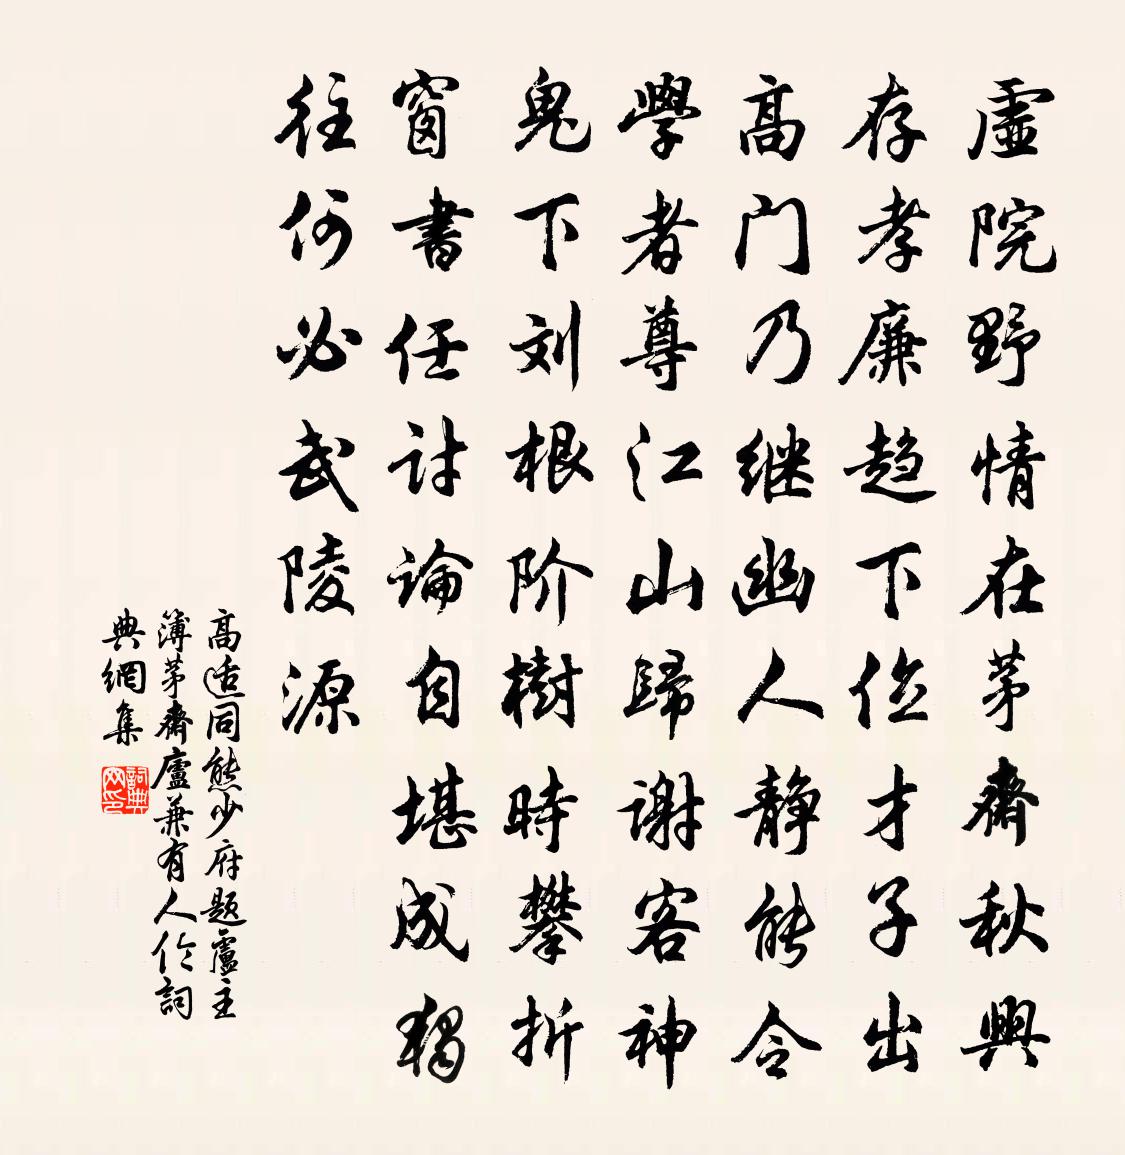 虛院野情在茅齋秋興
存孝廉趋下位才子出
高门乃继幽人静能令
學者尊江山歸谢客神
鬼下刘根阶樹時攀折
窗書任讨論自堪成獨
往何必武陵源
高适同熊少府题盧主
簿茅齋廬兼有人伦詞
典網集
詞典网印